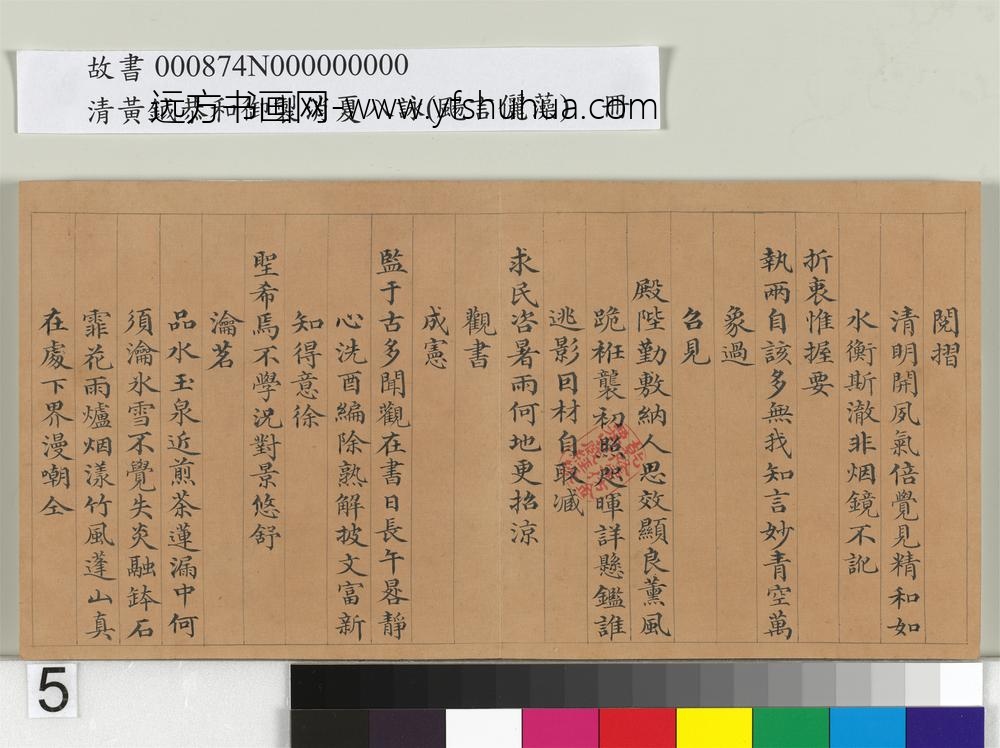 故書 000874N000000000
清黃鉞恭和御製消夏八詠(颺言儷藻) 冊
远方书画网-www.yfshuhua.com
閱摺
清明開夙氣倍覺見精和如
水衡斯澈非烟鏡不訛
折衷惟握要
執兩自該多無我知言妙青空萬
象過
召見
殿陛勤敷納人思效顯良薰風
跪袵襲初照煦暉詳懸鑑誰
逃影回材自取減
求民咨暑雨何地更招涼
觀書
成憲
監于古多聞觀在書日長午晷靜
心洗酉編除熟解披文富新
知得意徐
聖希焉不學況對景悠舒
瀹茗
品水玉泉近煎茶蓮漏中何
須瀹氷雪不覺失炎融缽石
霏花雨爐烟漾竹風蓬山真
在處下界漫嘲仝
5